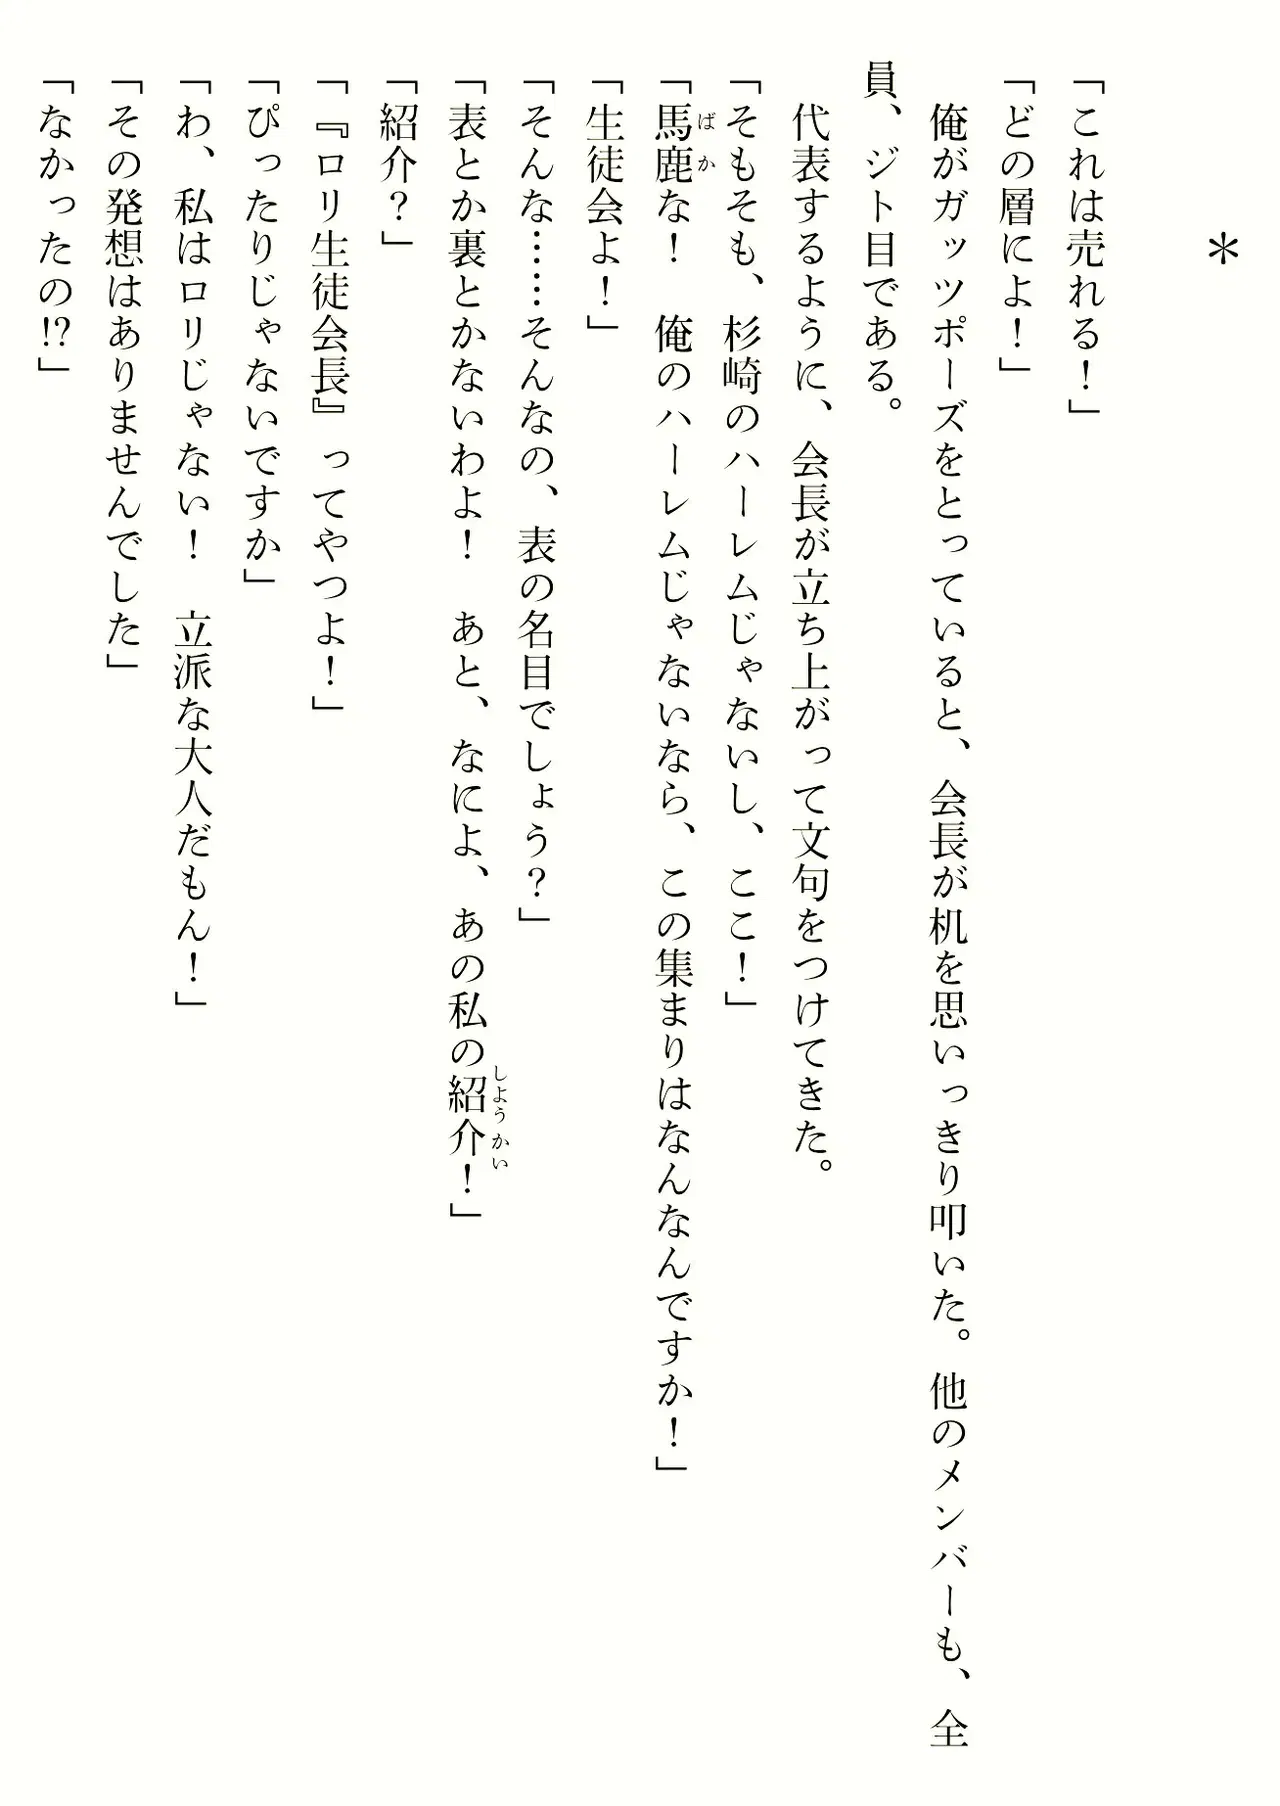 ＊
「これは売れる！」
「どの層によ！」
　俺がガッツポーズをとっていると、会長が机を思いっきり叩いた。他のメンバーも、全
員、ジト目である。
　代表するように、会長が立ち上がって文句をつけてきた。
「そもそも、杉崎のハーレムじゃないし、ここ！」
「馬鹿な！　俺のハーレムじゃないなら、この集まりはなんなんですか！」
ばか
「生徒会よ！」
「そんな……そんなの、表の名目でしょう？」
「表とか裏とかないわよ！　あと、なによ、あの私の紹介！」
しようかい
「紹介？」
「『ロリ生徒会長』ってやつよ！」
「ぴったりじゃないですか」
「わ、私はロリじゃない！　立派な大人だもん！」
「その発想はありませんでした」
「なかったの!?」